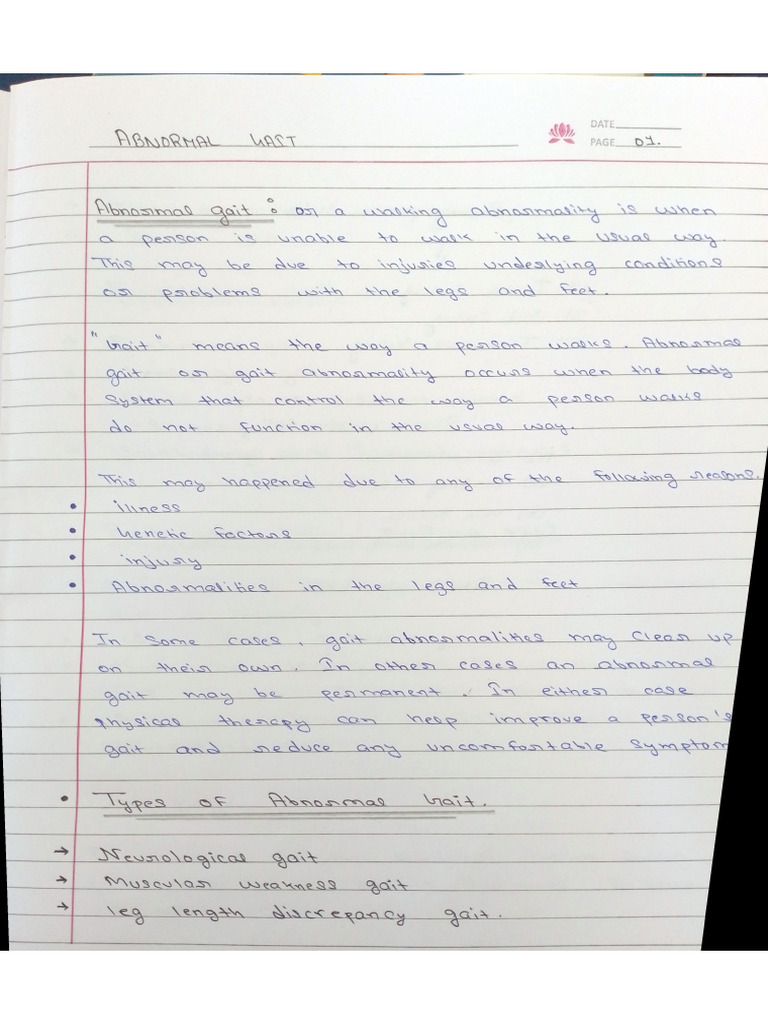 ABNORMAL GAIT
DATE
PAGE 01.
Abnormal gait : or a walking abnormality is when
a person is unable to walk in the usual way.
This may be due to injuries underlying conditions
or problems with the legs and feet.
"Gait" means the way a person walks. Abnormal
gait or gait abnormality occurs when the body
System that control the way a person walks
do not function in the usual way.
This may happened due to any of the following reasons.
• illness
• Genetic factors
• injury
• Abnormalities in the legs and feet
In some cases, gait abnormalities may Clear up
on their own. In other cases an abnormal
gait may be permanent. In either case
Physical therapy can help improve a person's
gait and reduce any uncomfortable Symptom
• Types of Abnormal Gait.
→ Neurological gait
→ Muscular weakness gait
→ leg length discrepancy gait.